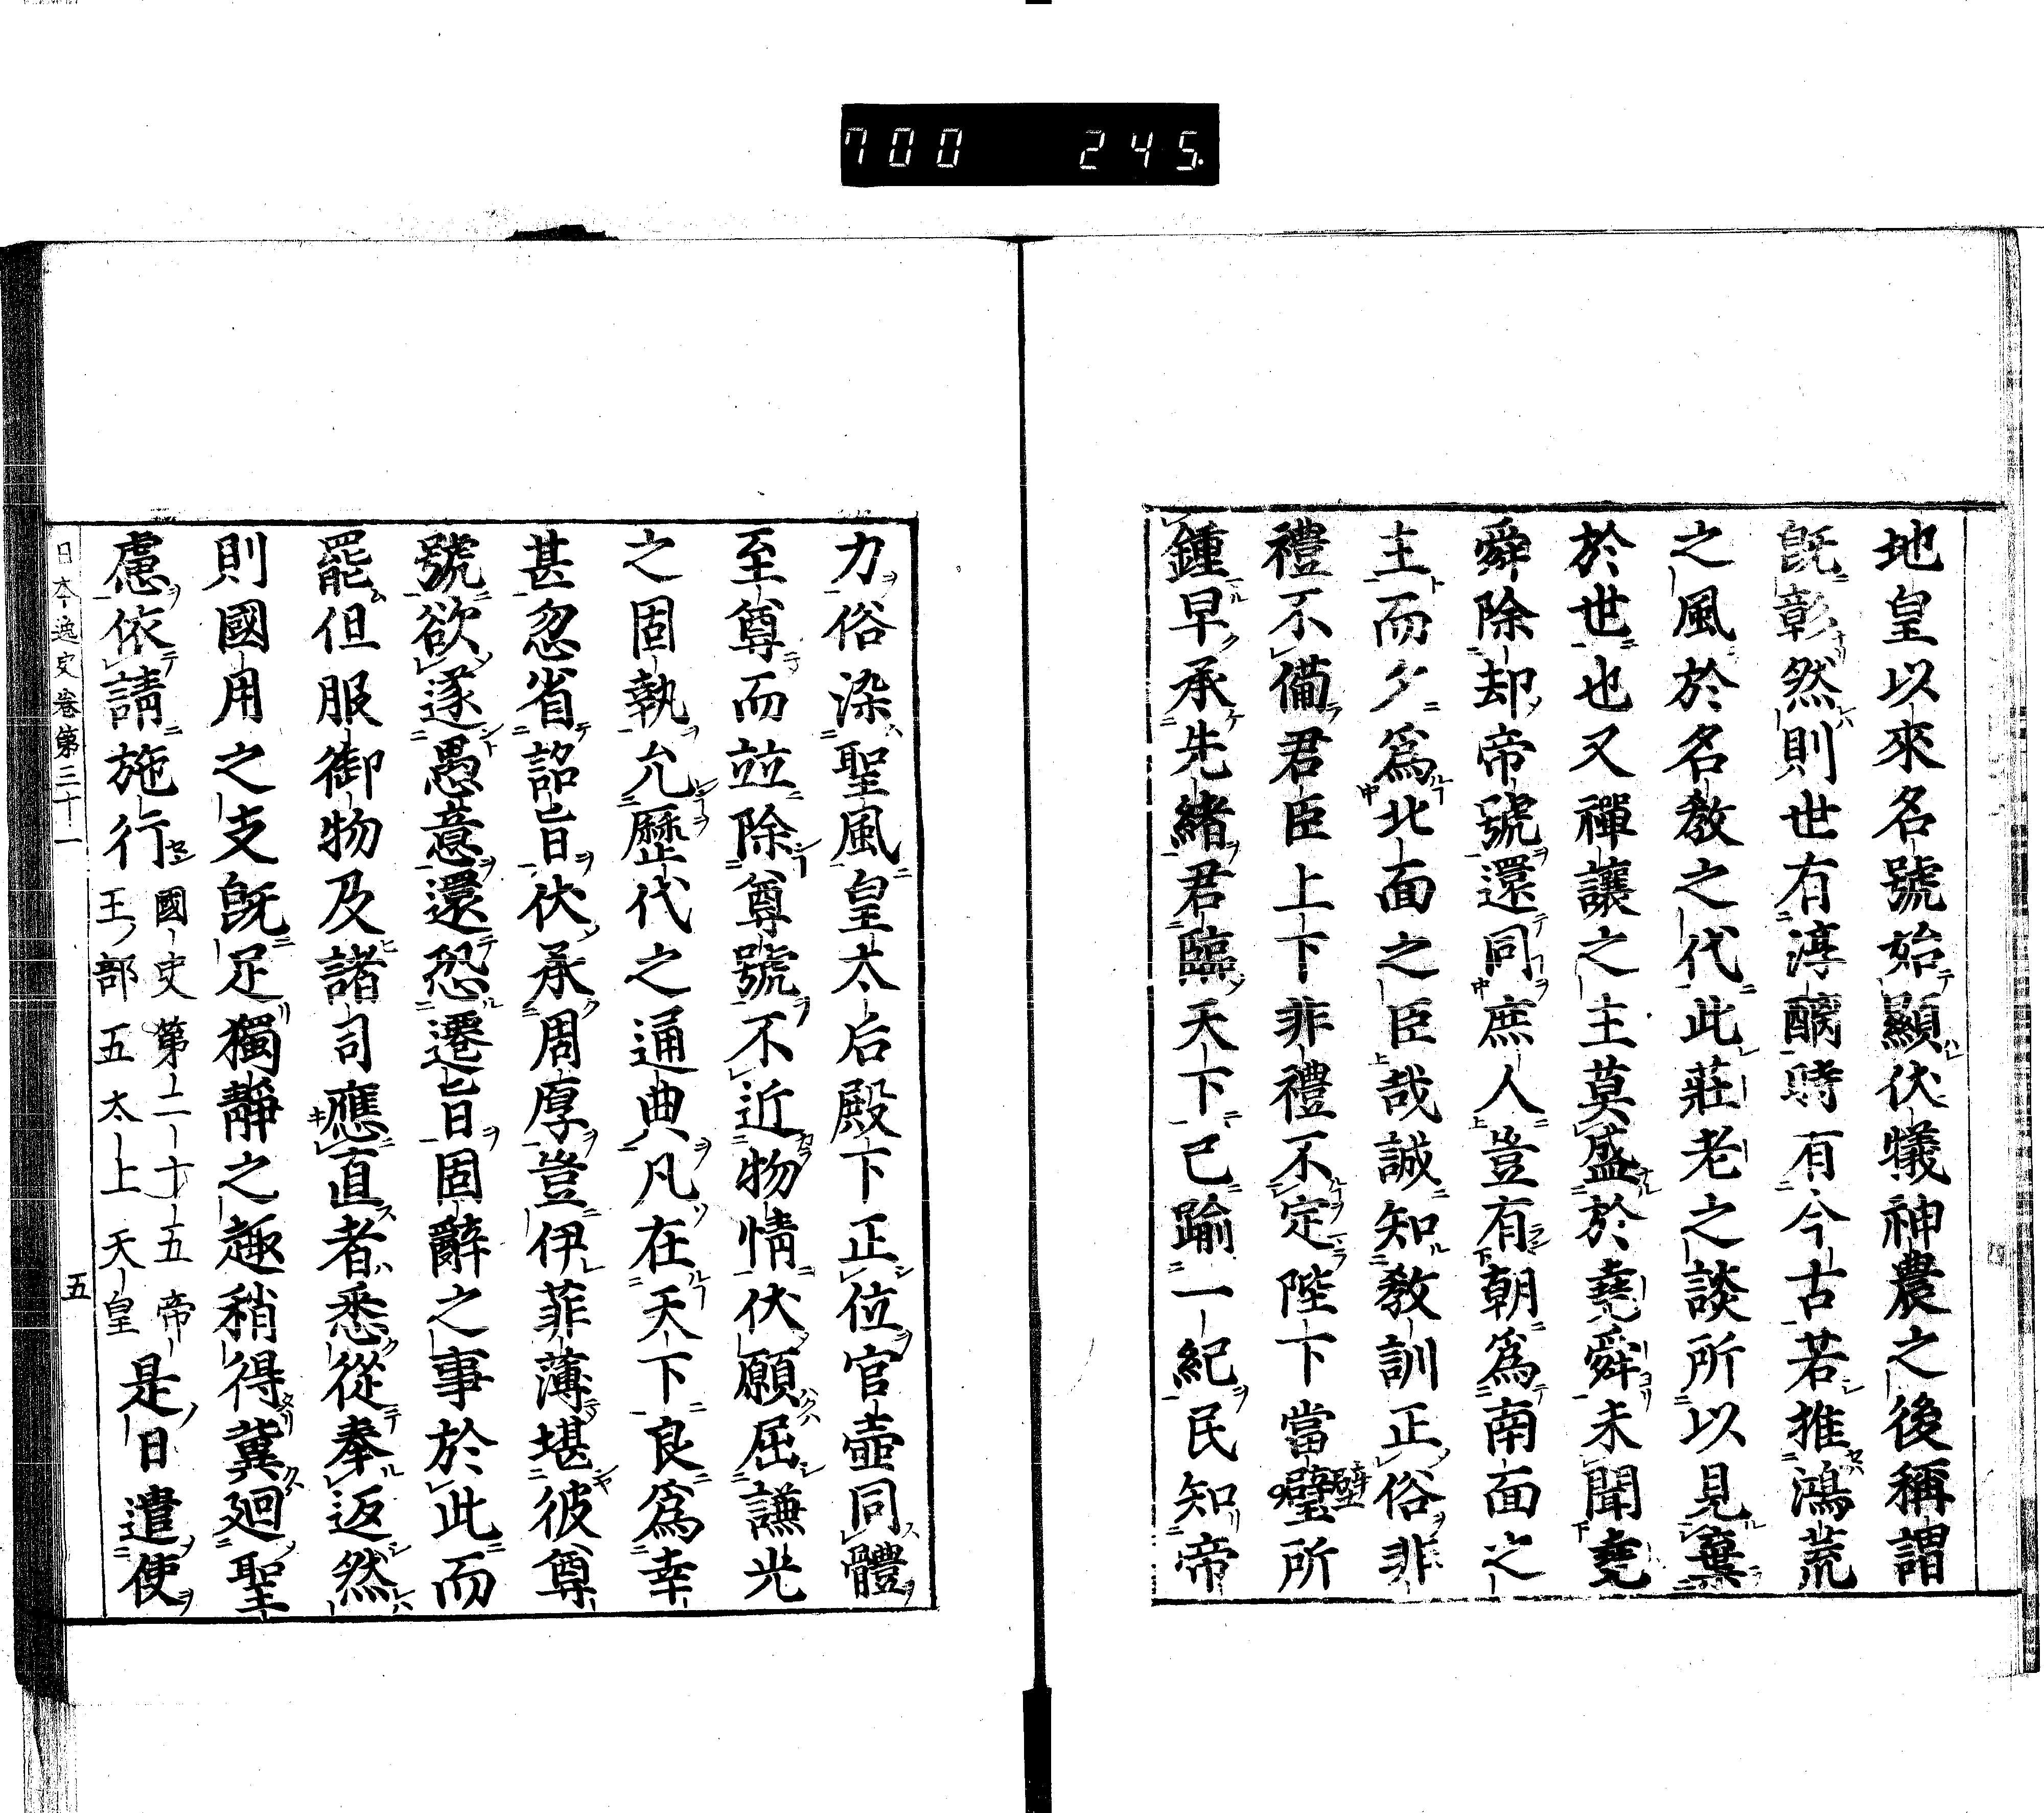 700 245.
地皇以來名號始顯伏犧神農之後稱謂
既彰然則世有淳醨時有今古若推鴻荒
之風於名教之代此莊老之談所以見棄
於世也又禪讓之主莫盛於堯舜未聞堯
舜除却帝號還同庶人豈有朝爲南面之
主而夕爲北面之臣哉誠知教訓正俗非
禮不備君臣上下非禮不定陛下當璧所
鍾早承先緒君臨天下已踰一紀民知帝
力俗染聖風皇太后殿下正位官壼同體
至尊而竝除尊號不近物情伏願屈謙光
之固執允歷代之通典凡在天下良爲幸
甚忽省詔旨伏承周厚豈伊菲薄堪彼尊
號欲遂愚意還恐遷旨固辭之事於此而
罷但服御物及諸司應直者悉從奉返然
則國用之支既足獨靜之趣稍得冀廻聖
慮依請施行國史第二十五帝王部五太上天皇是日遣使
日本逸史卷第三十一 五